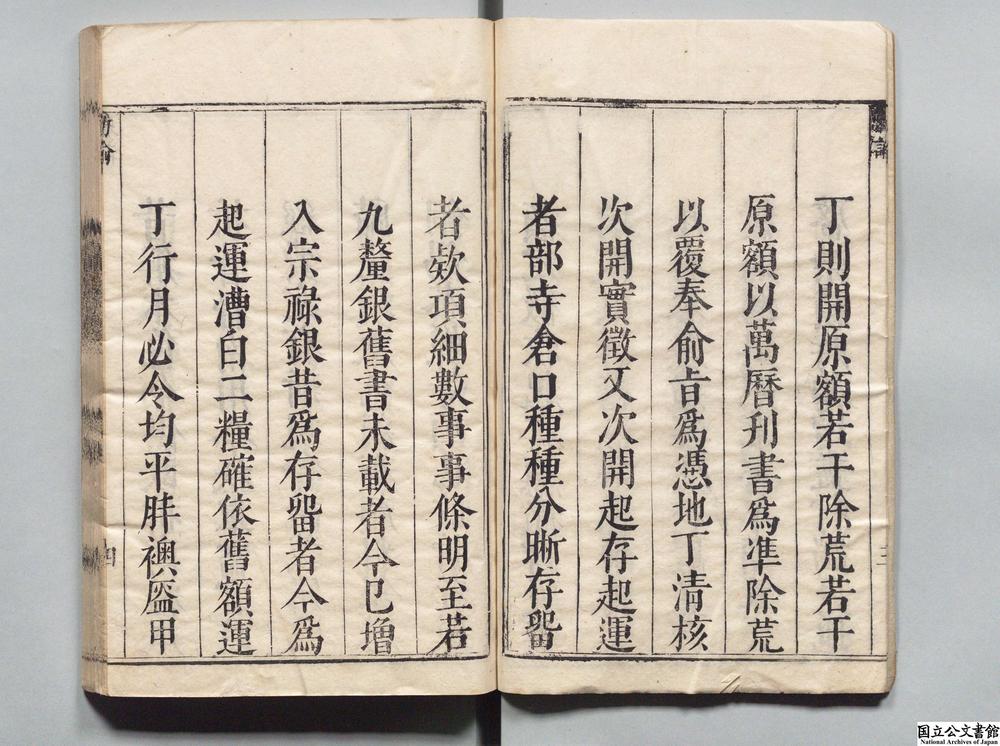 丁則開原額若干除荒若干
原額以萬曆刋書爲準除荒
以覆奉俞旨爲憑地丁清核
次開實徵又次開起存起運
者部寺倉口種種分晰存畱
者欵項細數事事條明至若
九釐銀舊書未載者今已增
入宗祿銀昔爲存畱者今爲
起運漕白二糧確依舊額運
丁行月必令均平胖襖盔甲
国立公文書館
National Archives of Japan